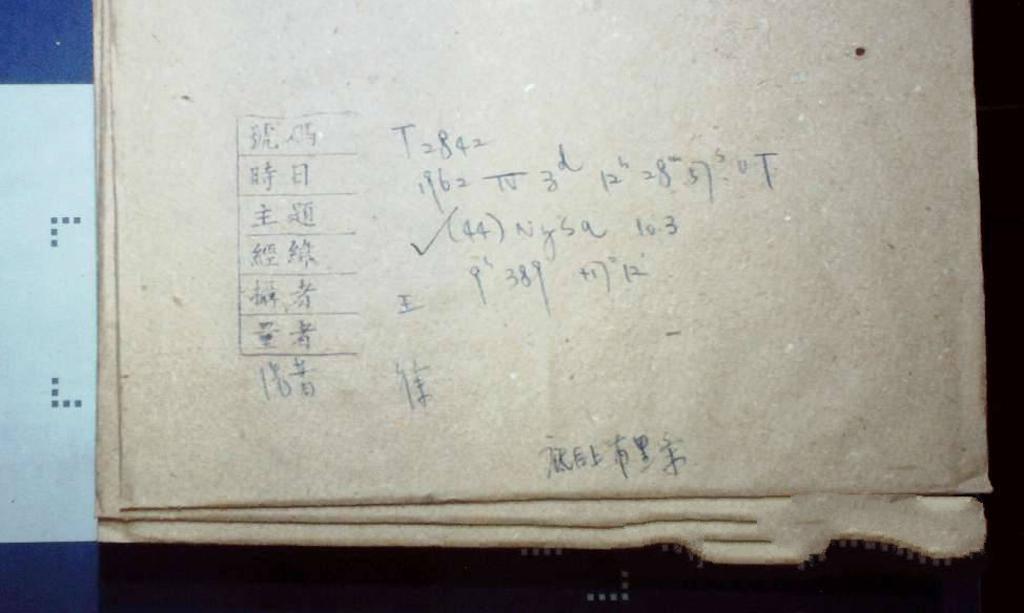 號碼 T2842
時日 1962 IV 3ᵈ 12ʰ 28ᵐ 57ˢ UT
主題 ✓(44) Nysa 10.3
經緯 9ʰ 389 +17°12'
攝者 王
量者
徐
底片上有黑条